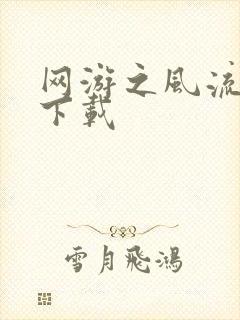 网游之风流
下载
雪月飛鴻